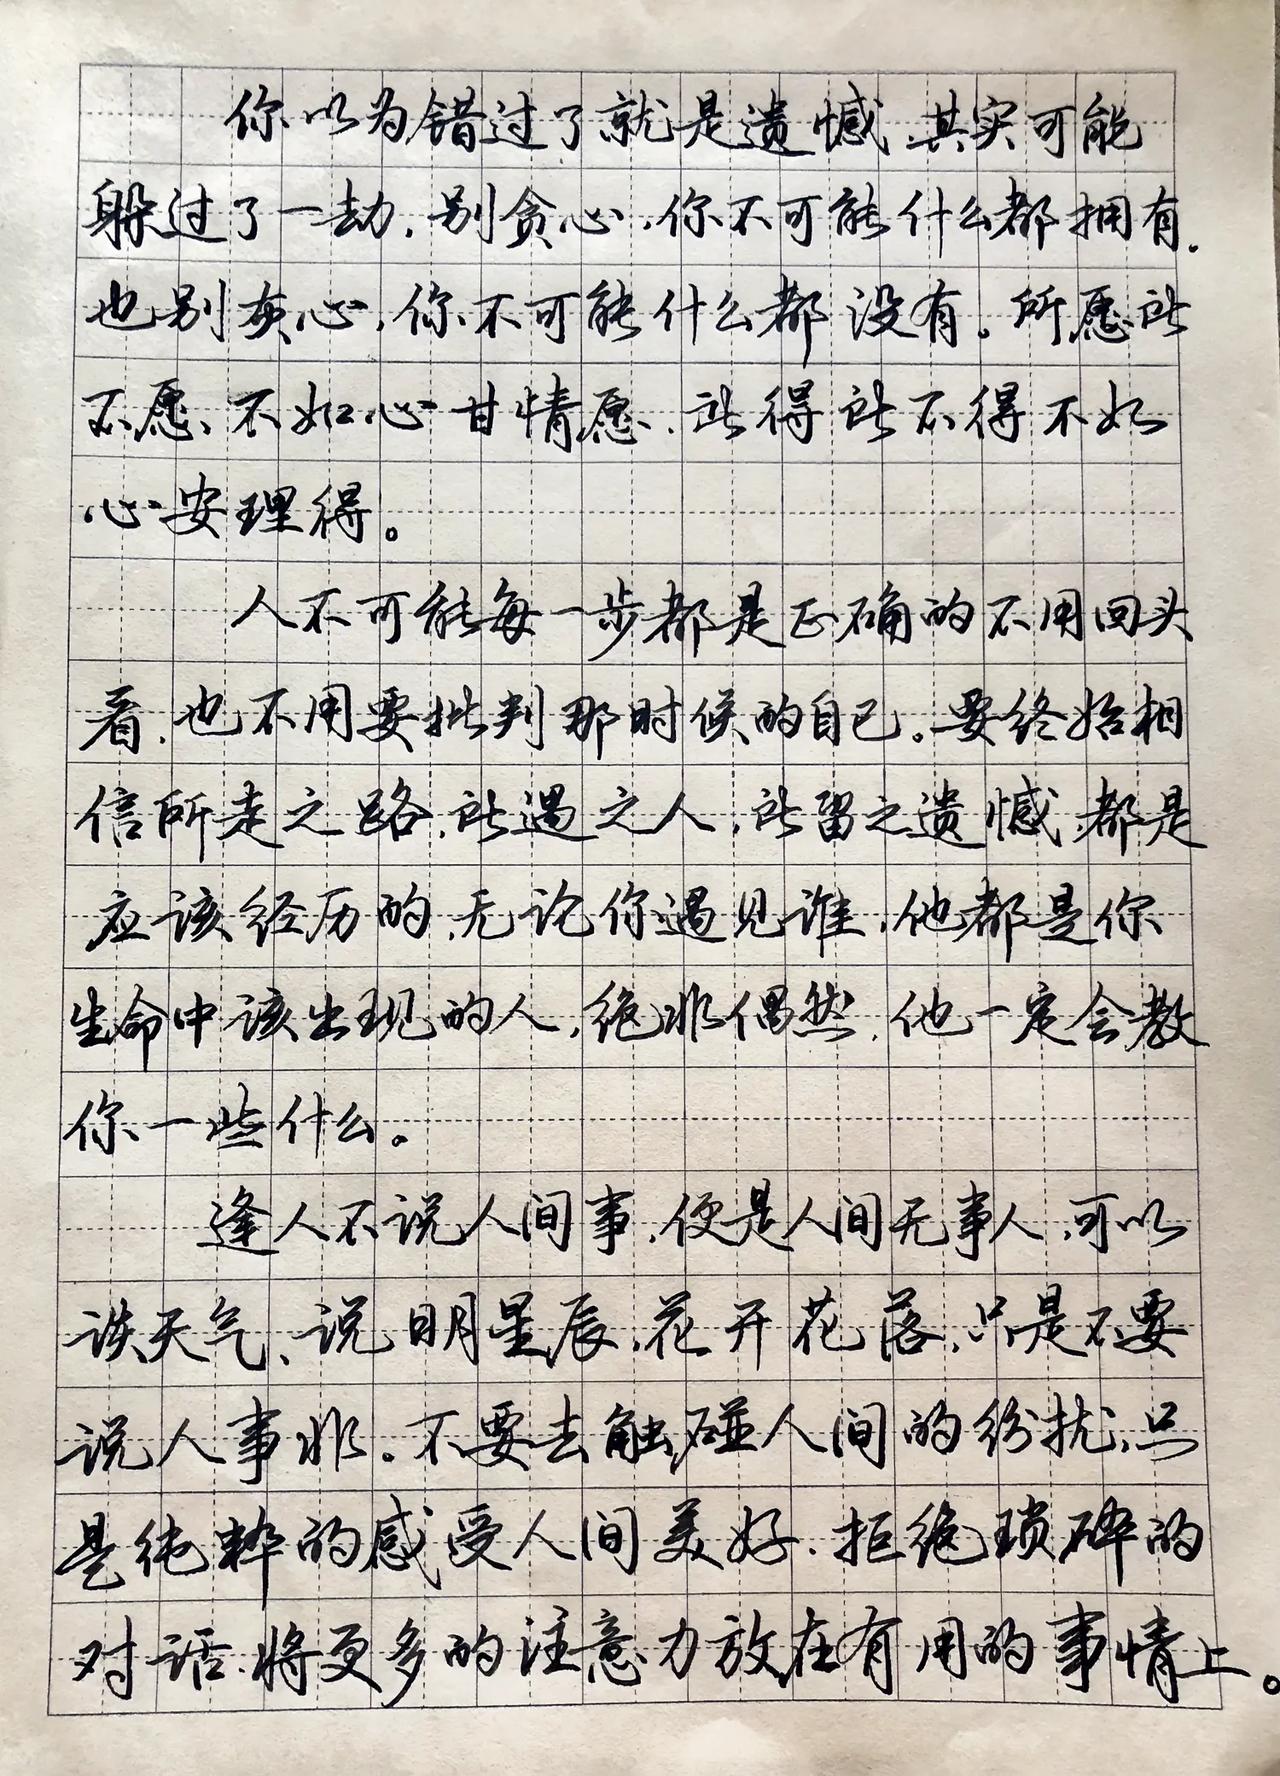 你以为错过了就是遗憾,其实可能
躲过了一劫,别贪心,你不可能什么都拥有.
也别灰心,你不可能什么都没有。所愿所
不愿、不如心甘情愿,所得所不得不如
心安理得。
人不可能每一步都是正确的不用回头
看,也不用要批判那时候的自己。要终始相
信所走之路,所遇之人,所留之遗憾,都是
应该经历的,无论你遇见谁,他都是你
生命中该出现的人,绝非偶然,他一定会教
你一些什么。
逢人不说人间事,便是人间无事人,可以
谈天气、说明星辰,花开花落,只是不要
说人事非。不要去触碰人间的纷扰,只
是纯粹的感受人间美好.拒绝琐碎的
对话,将更多的注意力放在有用的事情上。